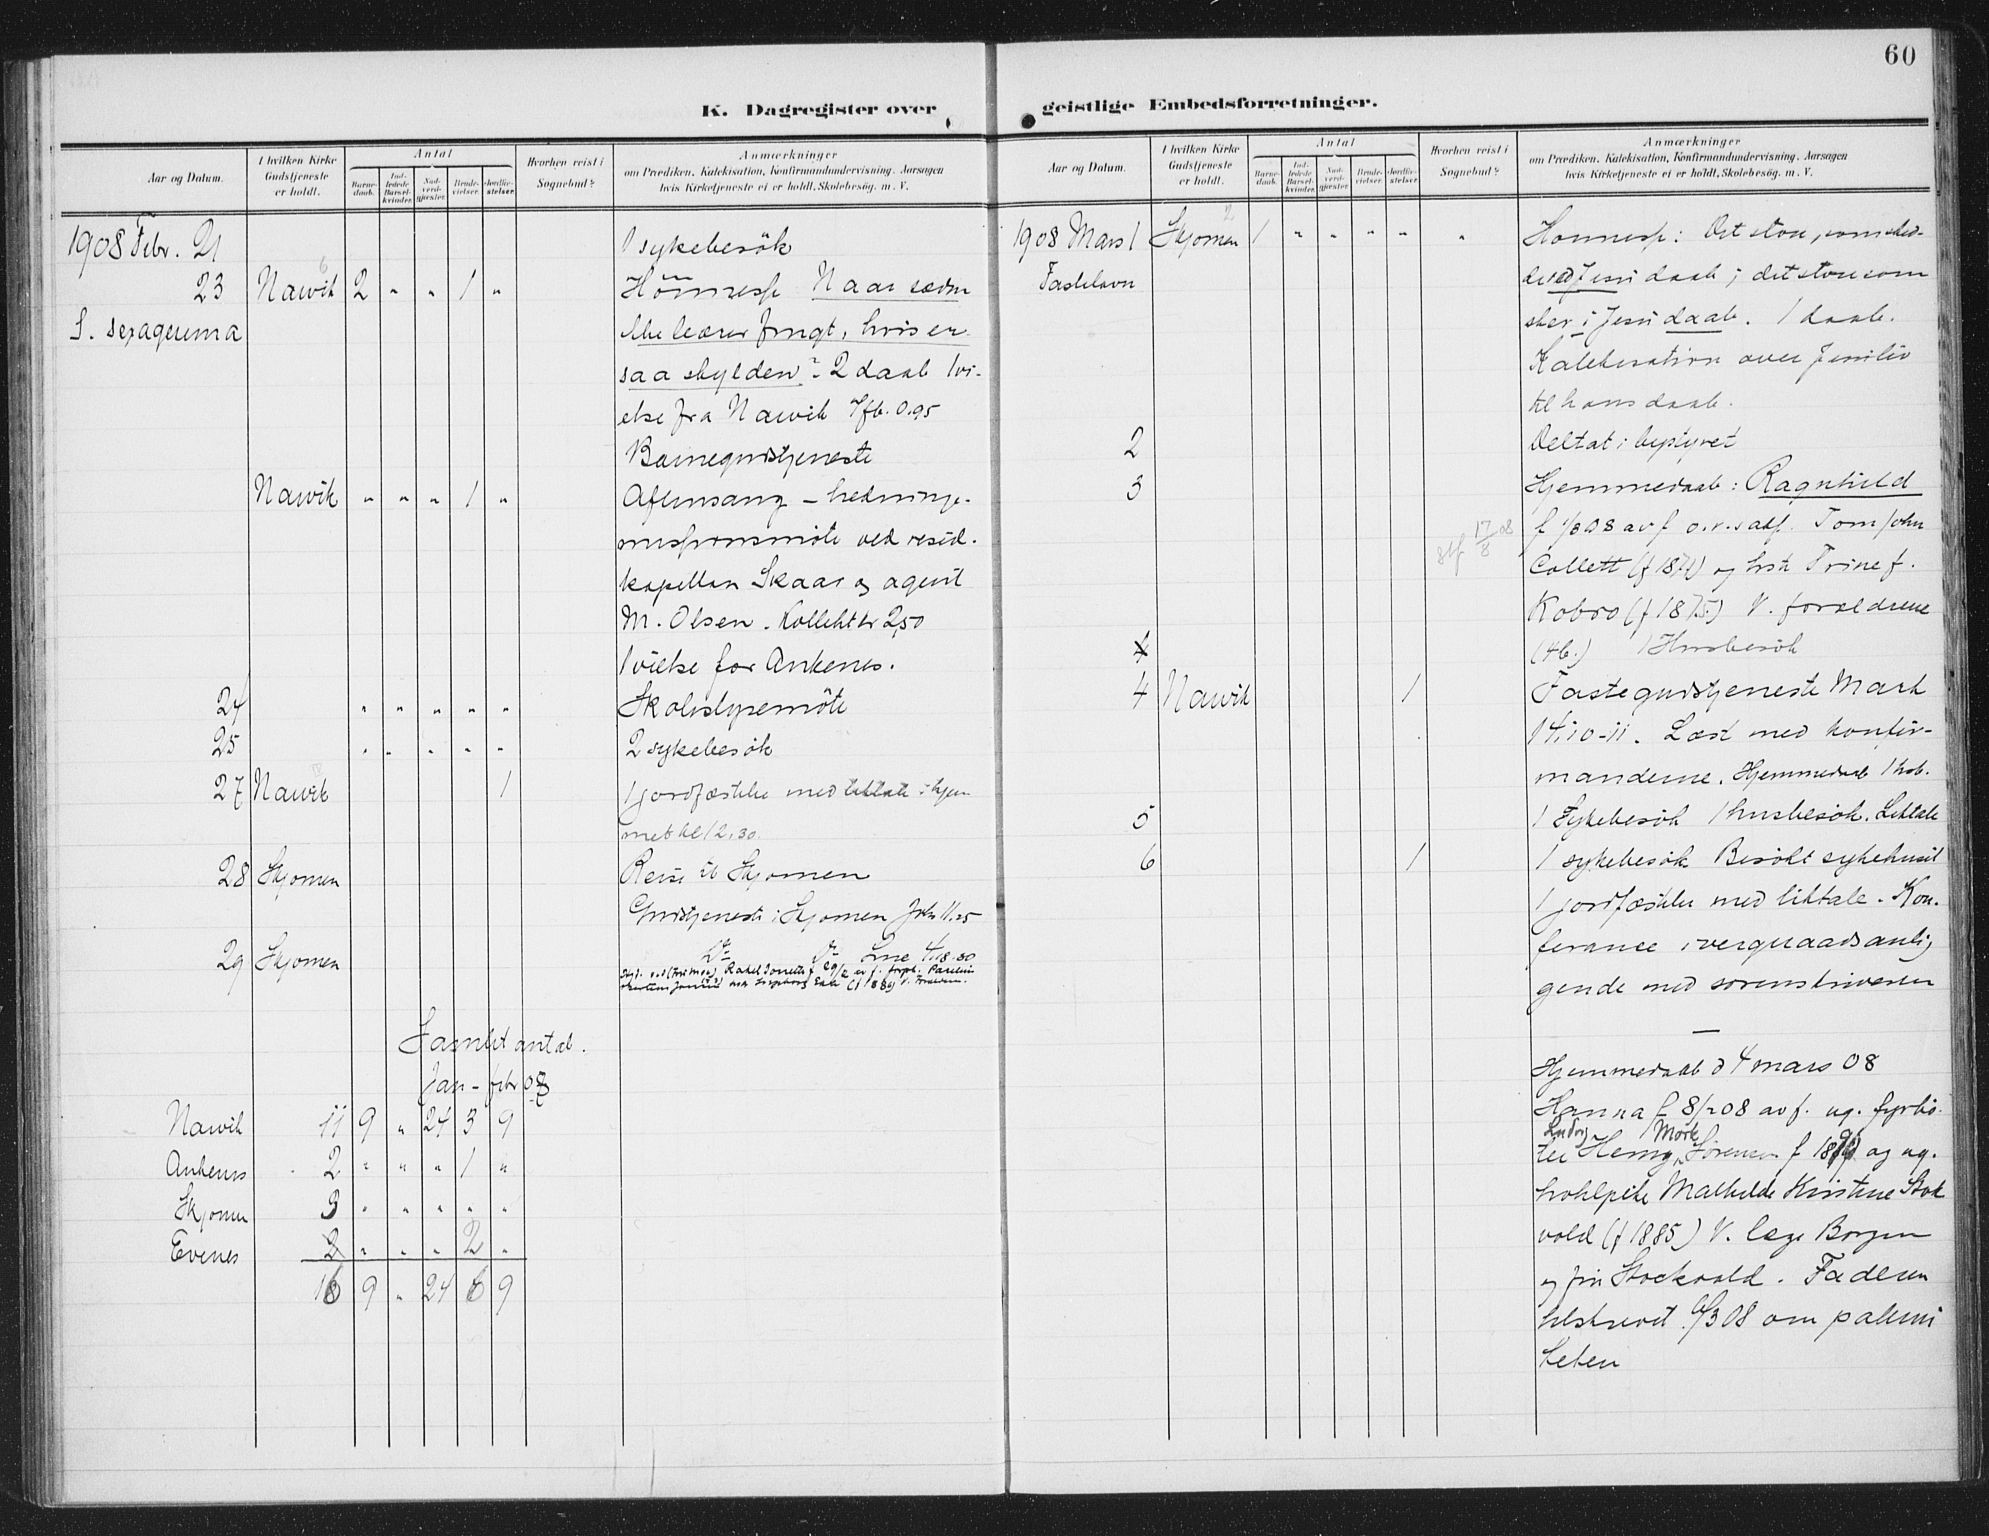 60
K. Dagregister over
geistlige Embedsforretninger.
Aar og Datum.
I hvilken Kirke Gudstjeneste er holdt.
Antal
Barne-daab.
Ind-ledede Barsel-kvinder.
Nad-verd-gjæster.
Brude-vielser.
Jordfæ-stelser.
Hvorhen reist i Sognebud?
Anmærkninger
om Prædiken, Katekisation, Konfirmandundervisning. Aarsagen
hvis Kirketjeneste ei er holdt, Skolebesøg. m. V.
1908 Febr. 21 1 sykebesök
23 Narvik 2 " " 1 " Höimesse Naar sæden
S. sexagesima ikke bærer frugt, hvis er
saa skylden? 2 daab 1 vi-
else fra Narvik 0.95
Barnegudstjeneste
Narvik " " " 1 " Aftensang – hedninge-
missionsmöte ved resid.
kapellan Skaar og agent
M. Olsen. Kollekt kr 2,50
1 vielse for Ankenes.
24 " " " " " Skolestyremöte
25 " " " " " 2 sykebesök
27 Narvik 1 1 jordfæstelse med liktale i hjem
met kl 12.30.
28 Skjomen Reise til Skjomen
Gudstjeneste i Skjomen 11.25
29 Skjomen
Samlet antal.
Jan – febr 08
Narvik 11 9 " 24 3 9
Ankenes 2 " " " 1 "
Skjomen 3 " " " " "
Evenes 2 " " " 2 "
9 " 24 6 9
Aar og Datum.
I hvilken Kirke Gudstjeneste er holdt.
Antal
Barne-daab.
Ind-ledede Barsel-kvinder.
Nad-verd-gjester.
Brude-vielser.
Jordfæ-stelser.
Hvorhen reist i Sognebud?
Anmærkninger
om Prædiken, Katekisation, Konfirmandundervisning. Aarsagen
hvis Kirketjeneste ei er holdt, Skolebesøg. m. V.
1908 Mars 1 Skjomen 1 " " " " " Det store, som sked-
Fastelavn de ved Jesu daab; det store som
sker i Jesu daab. 1 daab.
Katekisation over
til hans daab.
2 Deltat i
3 Hjemmedaab: Ragnhild
17/8 08
John
Collett og Trine f.
Kobro (f 1875) V. forældrene
1 Husbesök
4 Narvik 1 Fastegudstjeneste Mark
14.10-11. Læst med konfir-
manderne. Hjemmedaab
5 1 Sykebesök 1 husbesök. Liktale
6 1 1 sykebesök Besökt sykehuset
1 jordfæstelse med liktale. Kon-
ferance i vergeraadsanlig
gende med sorenskriveren
—
Hjemmedaab d 4 mars 08
Hanna f 8/2 08 av f. ug. fyrbö-
Ludvig Mørk
ter Henry Sörensen og ug.
Mathilde Kirstine Stok
vold (f 1885) V. læge Borgen
og frk Stockvold. Faderen
tilskrevet 6/3 08 om paterni
teten